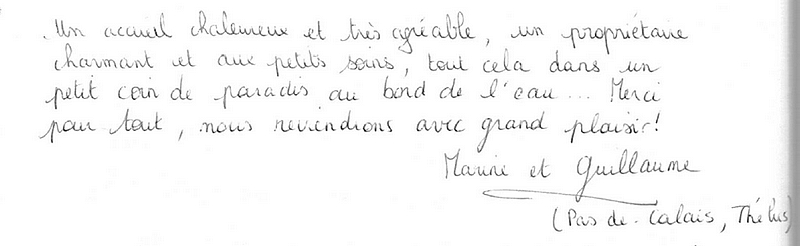 . Un accueil chaleureux et très agréable, un propriétaire
charmant et aux petits soins, tout cela dans un
petit coin de paradis au bord de l'eau... Merci
pour tout, nous reviendrons avec grand plaisir!
Marine et Guillaume
(Pas de-Calais, Thélus)